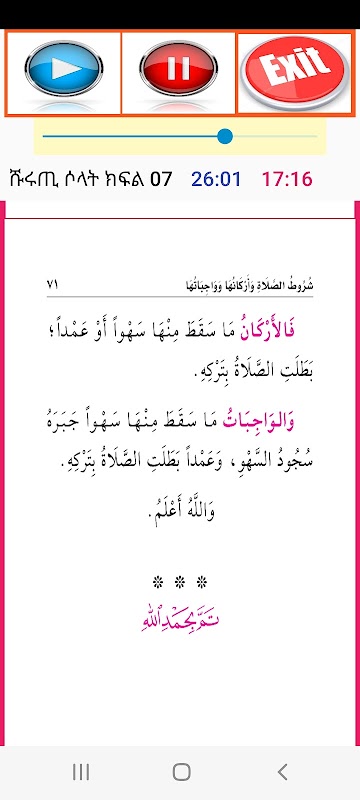 Exit
ሹሩጢ ሶላት ክፍል 07 26:01 17:16
شُرُوطُ الصَّلَاةِ وَأَرْكَانُهَا وَوَاجِبَاتُهَا ٧١
فَالأَرْكَانُ مَا سَقَطَ مِنْهَا سَهْواً أَوْ عَمْداً؛
بَطَلَتِ الصَّلَاةُ بِتَرْكِهِ.
وَالوَاجِبَاتُ مَا سَقَطَ مِنْهَا سَهْواً جَبَرَهُ
سُجُودُ السَّهْوِ، وَعَمْداً بَطَلَتِ الصَّلَاةُ بِتَرْكِهِ.
وَاللَّهُ أَعْلَمُ.
* * *
تَمَّ بِحَمْدِ اللَّهِ